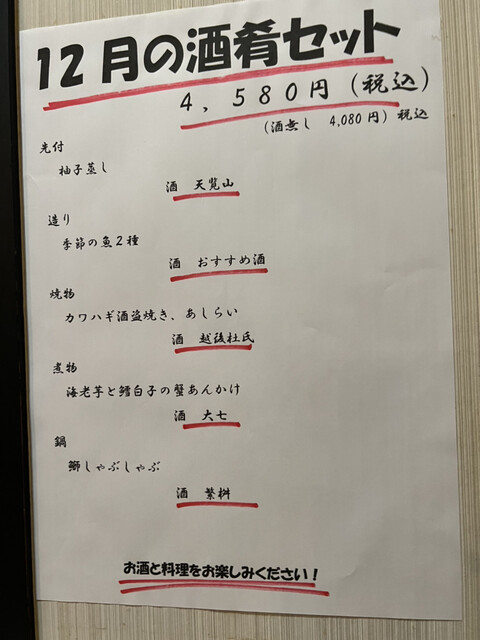 12月の酒肴セット
4,580円(税込)
(酒無し 4,080円)税込
先付
柚子蒸し
酒 天覧山
造り
季節の魚2種
酒 おすすめ酒
焼物
カワハギ酒盗焼き、あしらい
酒 越後杜氏
煮物
海老芋と鱈白子の蟹あんかけ
酒 大七
鍋
鰤しゃぶしゃぶ
酒 繁桝
お酒と料理をお楽しみください!